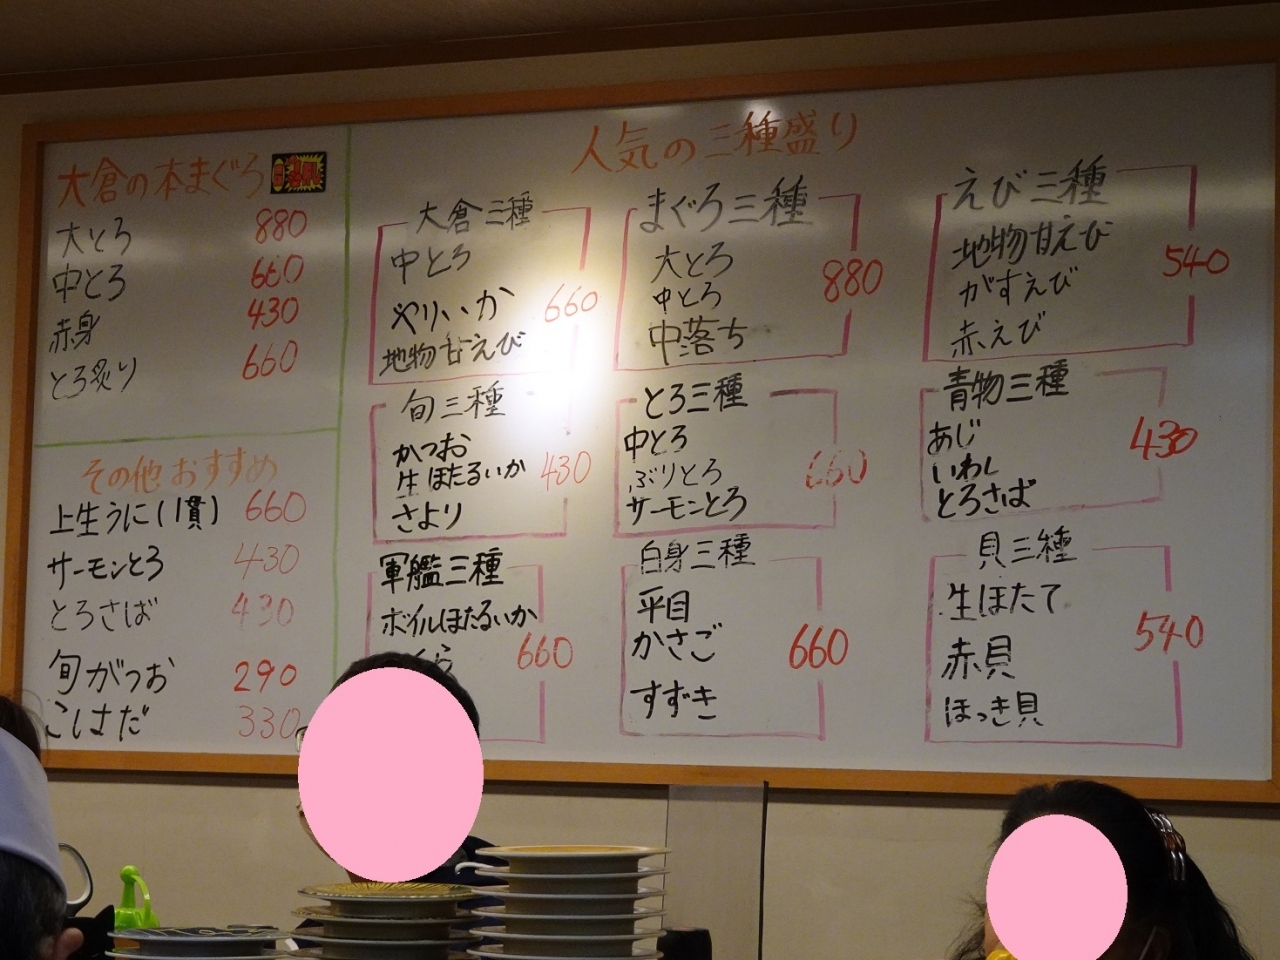 大倉の本まぐろ
大とろ 880
中とろ 660
赤身 430
とろ炙り 660
その他おすすめ
上生うに(1貫) 660
サーモンとろ 430
とろさば 430
旬がつお 290
こはだ 330
人気の三種盛り
大倉三種
中とろ
やりいか 660
地物甘えび
まぐろ三種
大とろ
中とろ 880
中落ち
えび三種
地物甘えび 540
がすえび
赤えび
旬三種
かつお
生ほたるいか 430
さより
とろ三種
中とろ
ぶりとろ 660
サーモンとろ
青物三種
あじ 430
いわし
とろさば
軍艦三種
ボイルほたるいか
くら 660
白身三種
平目
かさご 660
すずき
貝三種
生ほたて
赤貝 540
ほっき貝